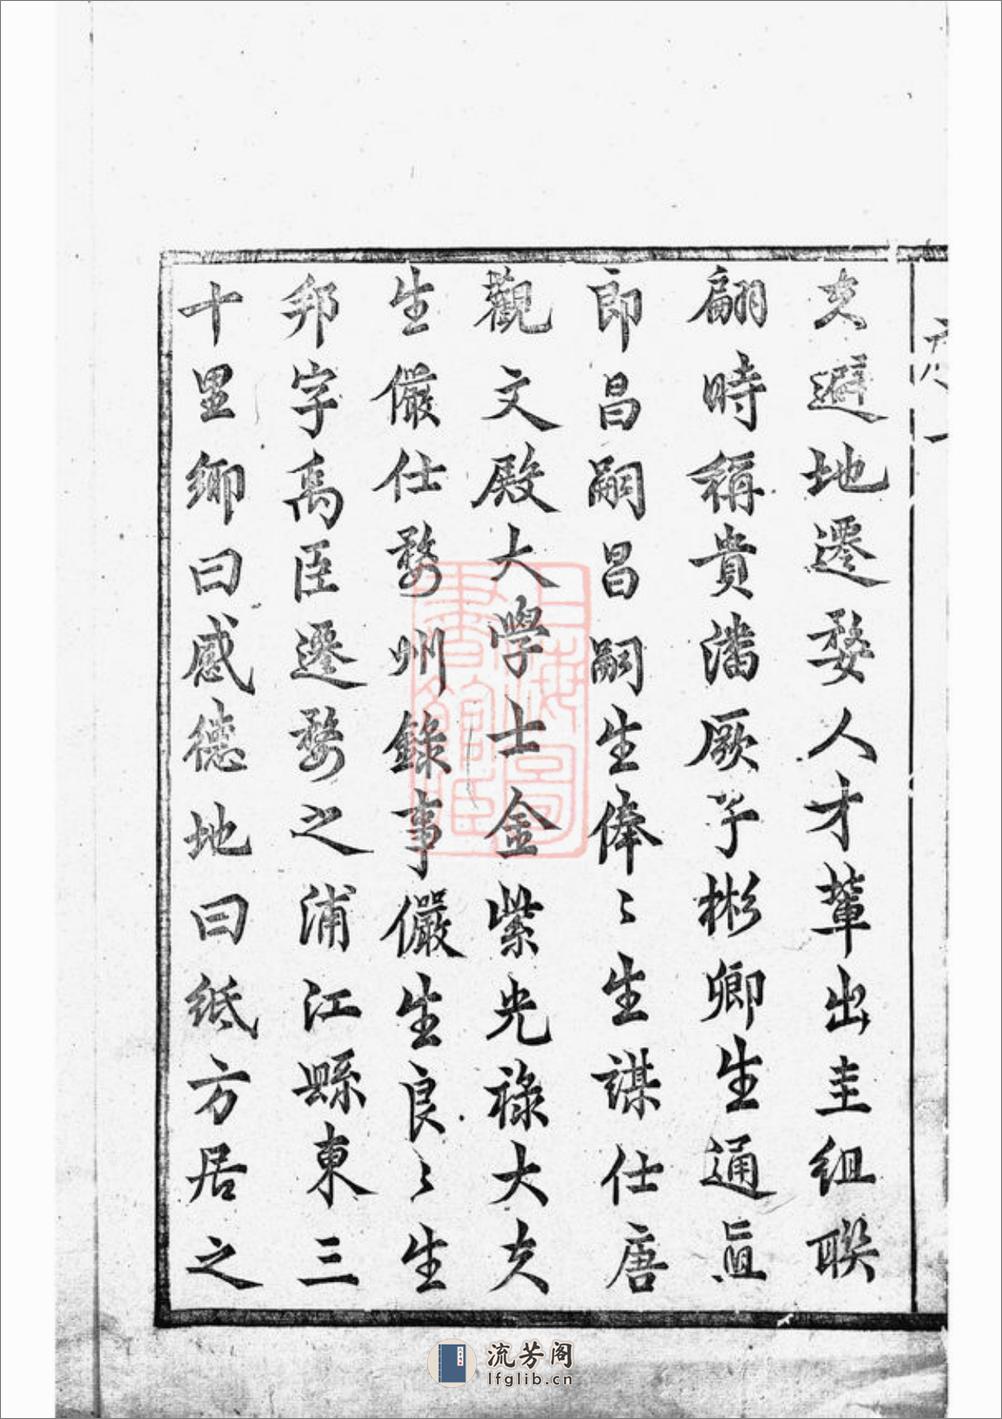 父避地遷婺人才輩出圭組聯
翩時稱貴潘厥子彬卿生通直
郎昌嗣昌嗣生俸〻生謀仕唐
觀文殿大學士金紫光祿大夫
生儼仕婺州錄事儼生良〻生
邦字禹臣遷婺之浦江縣東三
十里鄉曰感德地曰紙方居之
上海圖書館藏
流芳阁
lfglib.cn